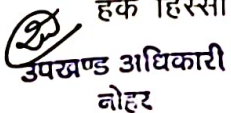 हक हिस्सा
उपखण्ड अधिकारी
नोहर